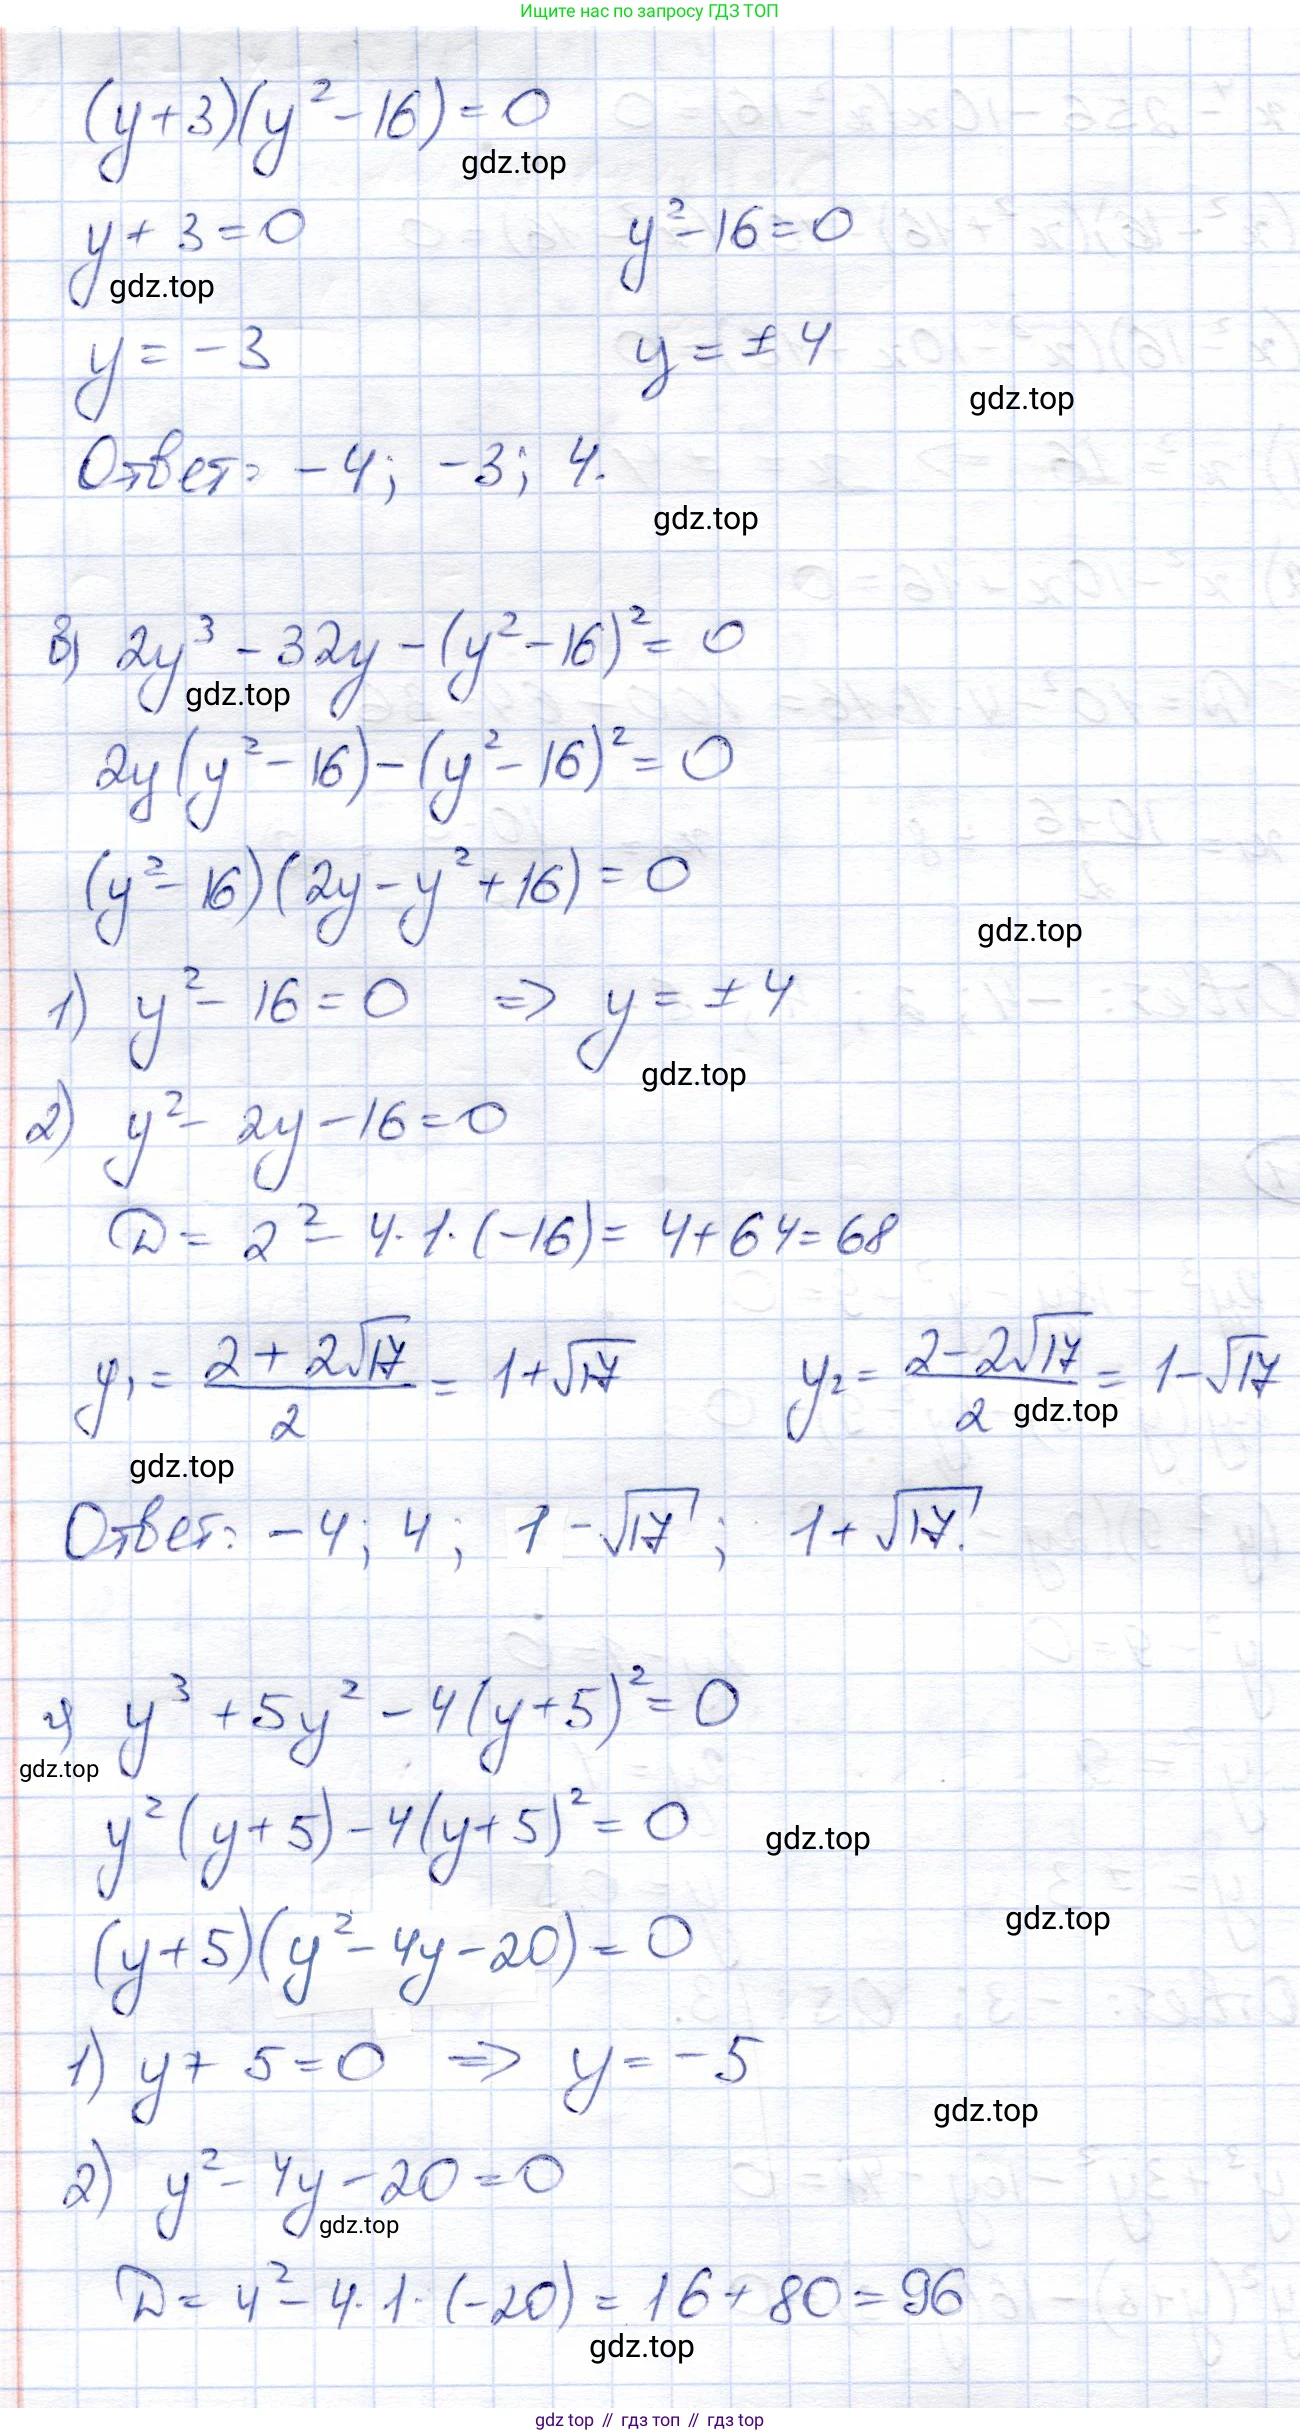 Ищите нас по запросу ГДЗ ТОП
(y+3)(y²-16)=0
gdz.top
y+3=0 y²-16=0
gdz.top
y=-3 y=±4
gdz.top
Ответ: -4; -3; 4.
gdz.top
в) 2y³-32y-(y²-16)²=0
gdz.top
2y(y²-16)-(y²-16)²=0
(y²-16)(2y-y²+16)=0
gdz.top
1) y²-16=0 => y=±4
gdz.top
2) y²-2y-16=0
D=2²-4·1·(-16)=4+64=68
y₁=(2+2√17)/2=1+√17 y₂=(2-2√17)/2=1-√17
gdz.top
gdz.top
Ответ: -4; 4; 1-√17; 1+√17.
г) y³+5y²-4(y+5)²=0
gdz.top
y²(y+5)-4(y+5)²=0
gdz.top
gdz.top
(y+5)(y²-4y-20)=0
1) y+5=0 => y=-5
gdz.top
2) y²-4y-20=0
gdz.top
D=4²-4·1·(-20)=16+80=96
gdz.top
gdz top // гдз топ // гдз top